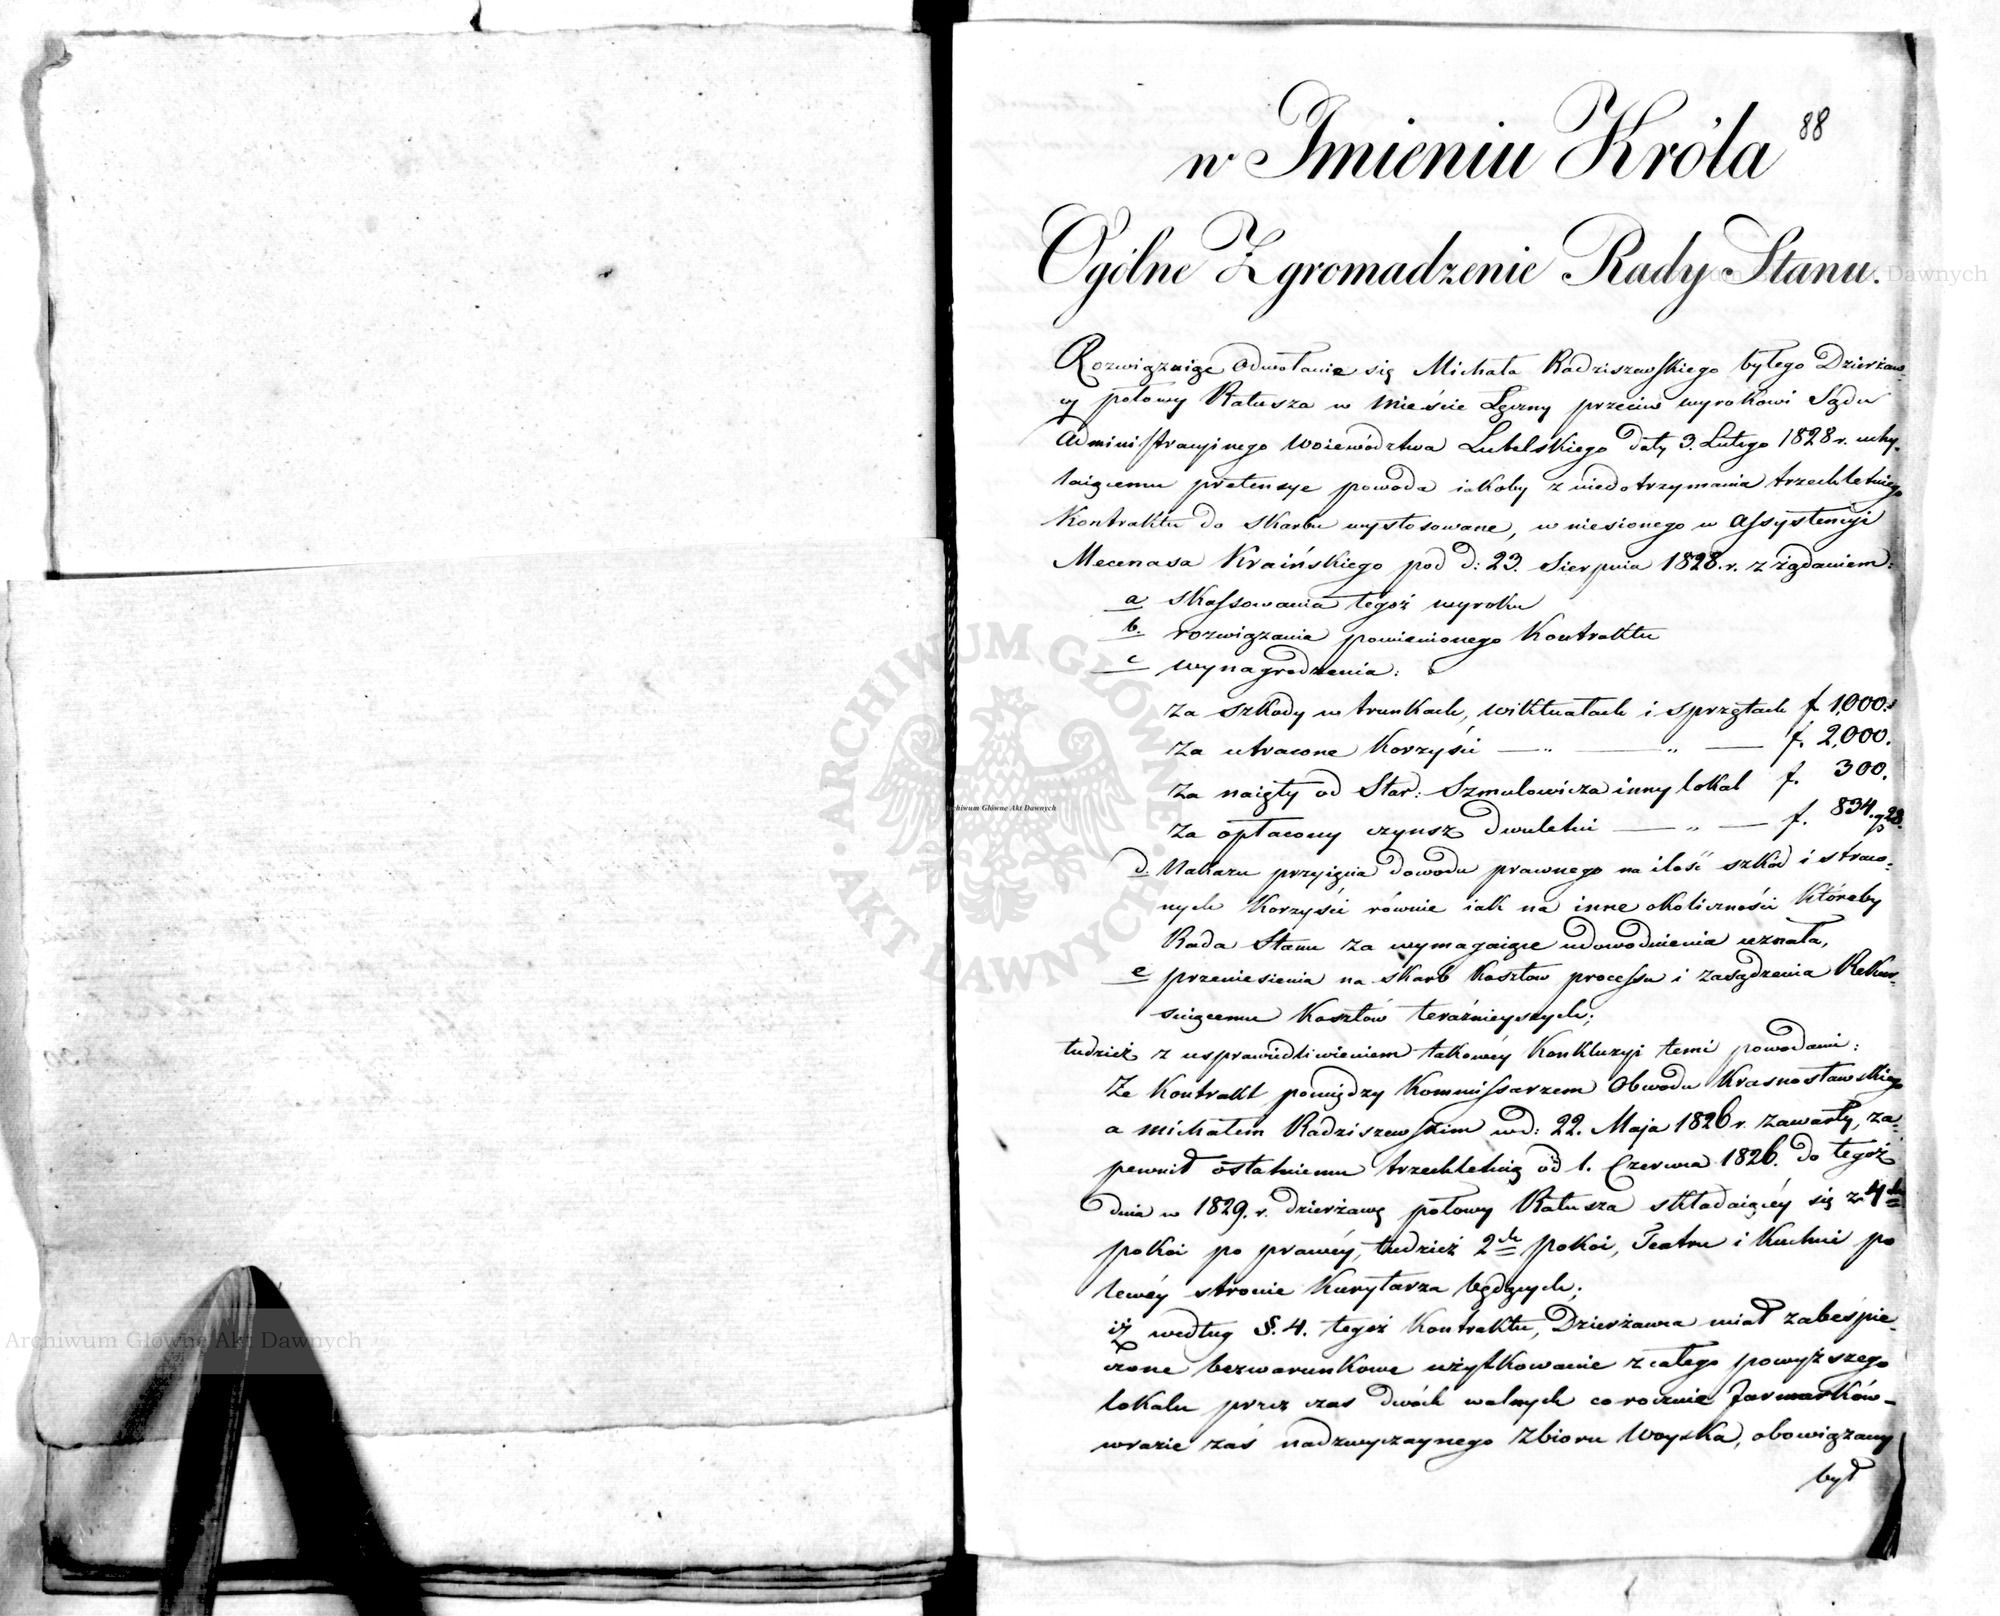 88
w Imieniu Króla
Ogólne Zgromadzenie Rady Stanu.
Rozwiązuiąc odwołanie się Michała Radziszewskiego byłego Dzierżaw-
cy połowy Ratusza w Mieście Łęczny przeciw wyrokowi Sądu
Administracyinego Woiewództwa Lubelskiego daty 3. Lutego 1828 r. uchy-
laiącemu pretensye powoda iakoby z niedotrzymania trzechletniego
Kontraktu do Skarbu wystosowane, wniesionego w Assystencyi
Mecenasa Kraińskiego pod d: 23. Sierpnia 1828. r. z żądaniem:
a skassowania tegoż wyroku
b. rozwiązania pomienionego Kontraktu
c wynagrodzenia:
za szkody w trunkach, wiktuałach i sprzętach f 1,000.
za utracone Korzyści — " — " — f. 2,000.
za naięty od Star: Szmulowicza inny lokal f. 300.
za opłacony czynsz dwuletni — " — f. 834. g 28.
d. Nakazu przyięcia dowodu prawnego na ilość szkód i straco-
nych Korzyści równie iak na inne okoliczności któreby
Rada Stanu za wymagaiące udowodnienia uznała,
e przeniesienia na skarb kosztów processu i zasądzenia Rekur-
suiącemu Kosztów teraźnieyszych;
tudzież z usprawiedliwieniem takowéy Konkluzyi temi powodami:
Że Kontrakt pomiędzy Kommissarzem Obwodu Krasnostawskiego
a Michałem Radziszewskim w d: 22. Maja 1826 r. zawarty, za-
pewnił ostatniemu trzechletnią od 1. Czerwca 1826. do tegoż
dnia w 1829. r. dzierżawę połowy Ratusza składaiącéy się z 4ch
pokoi po prawéy, tudzież 2ch pokoi, Teatru i Kuchni po
lewéy stronie Kurytarza będących;
iż według §. 4. tegoż Kontraktu, Dzierżawca miał zabeśpie-
czone bezwarunkowe użytkowanie z całego powyższego
lokalu przez czas dwóch walnych corocznie Jarmarków-
wrazie zaś nadzwyczaynego Zbioru Woyska, obowiązany
był
ARCHIWUM GŁÓWNE AKT DAWNYCH
Archiwum Główne Akt Dawnych
Archiwum Główne Akt Dawnych